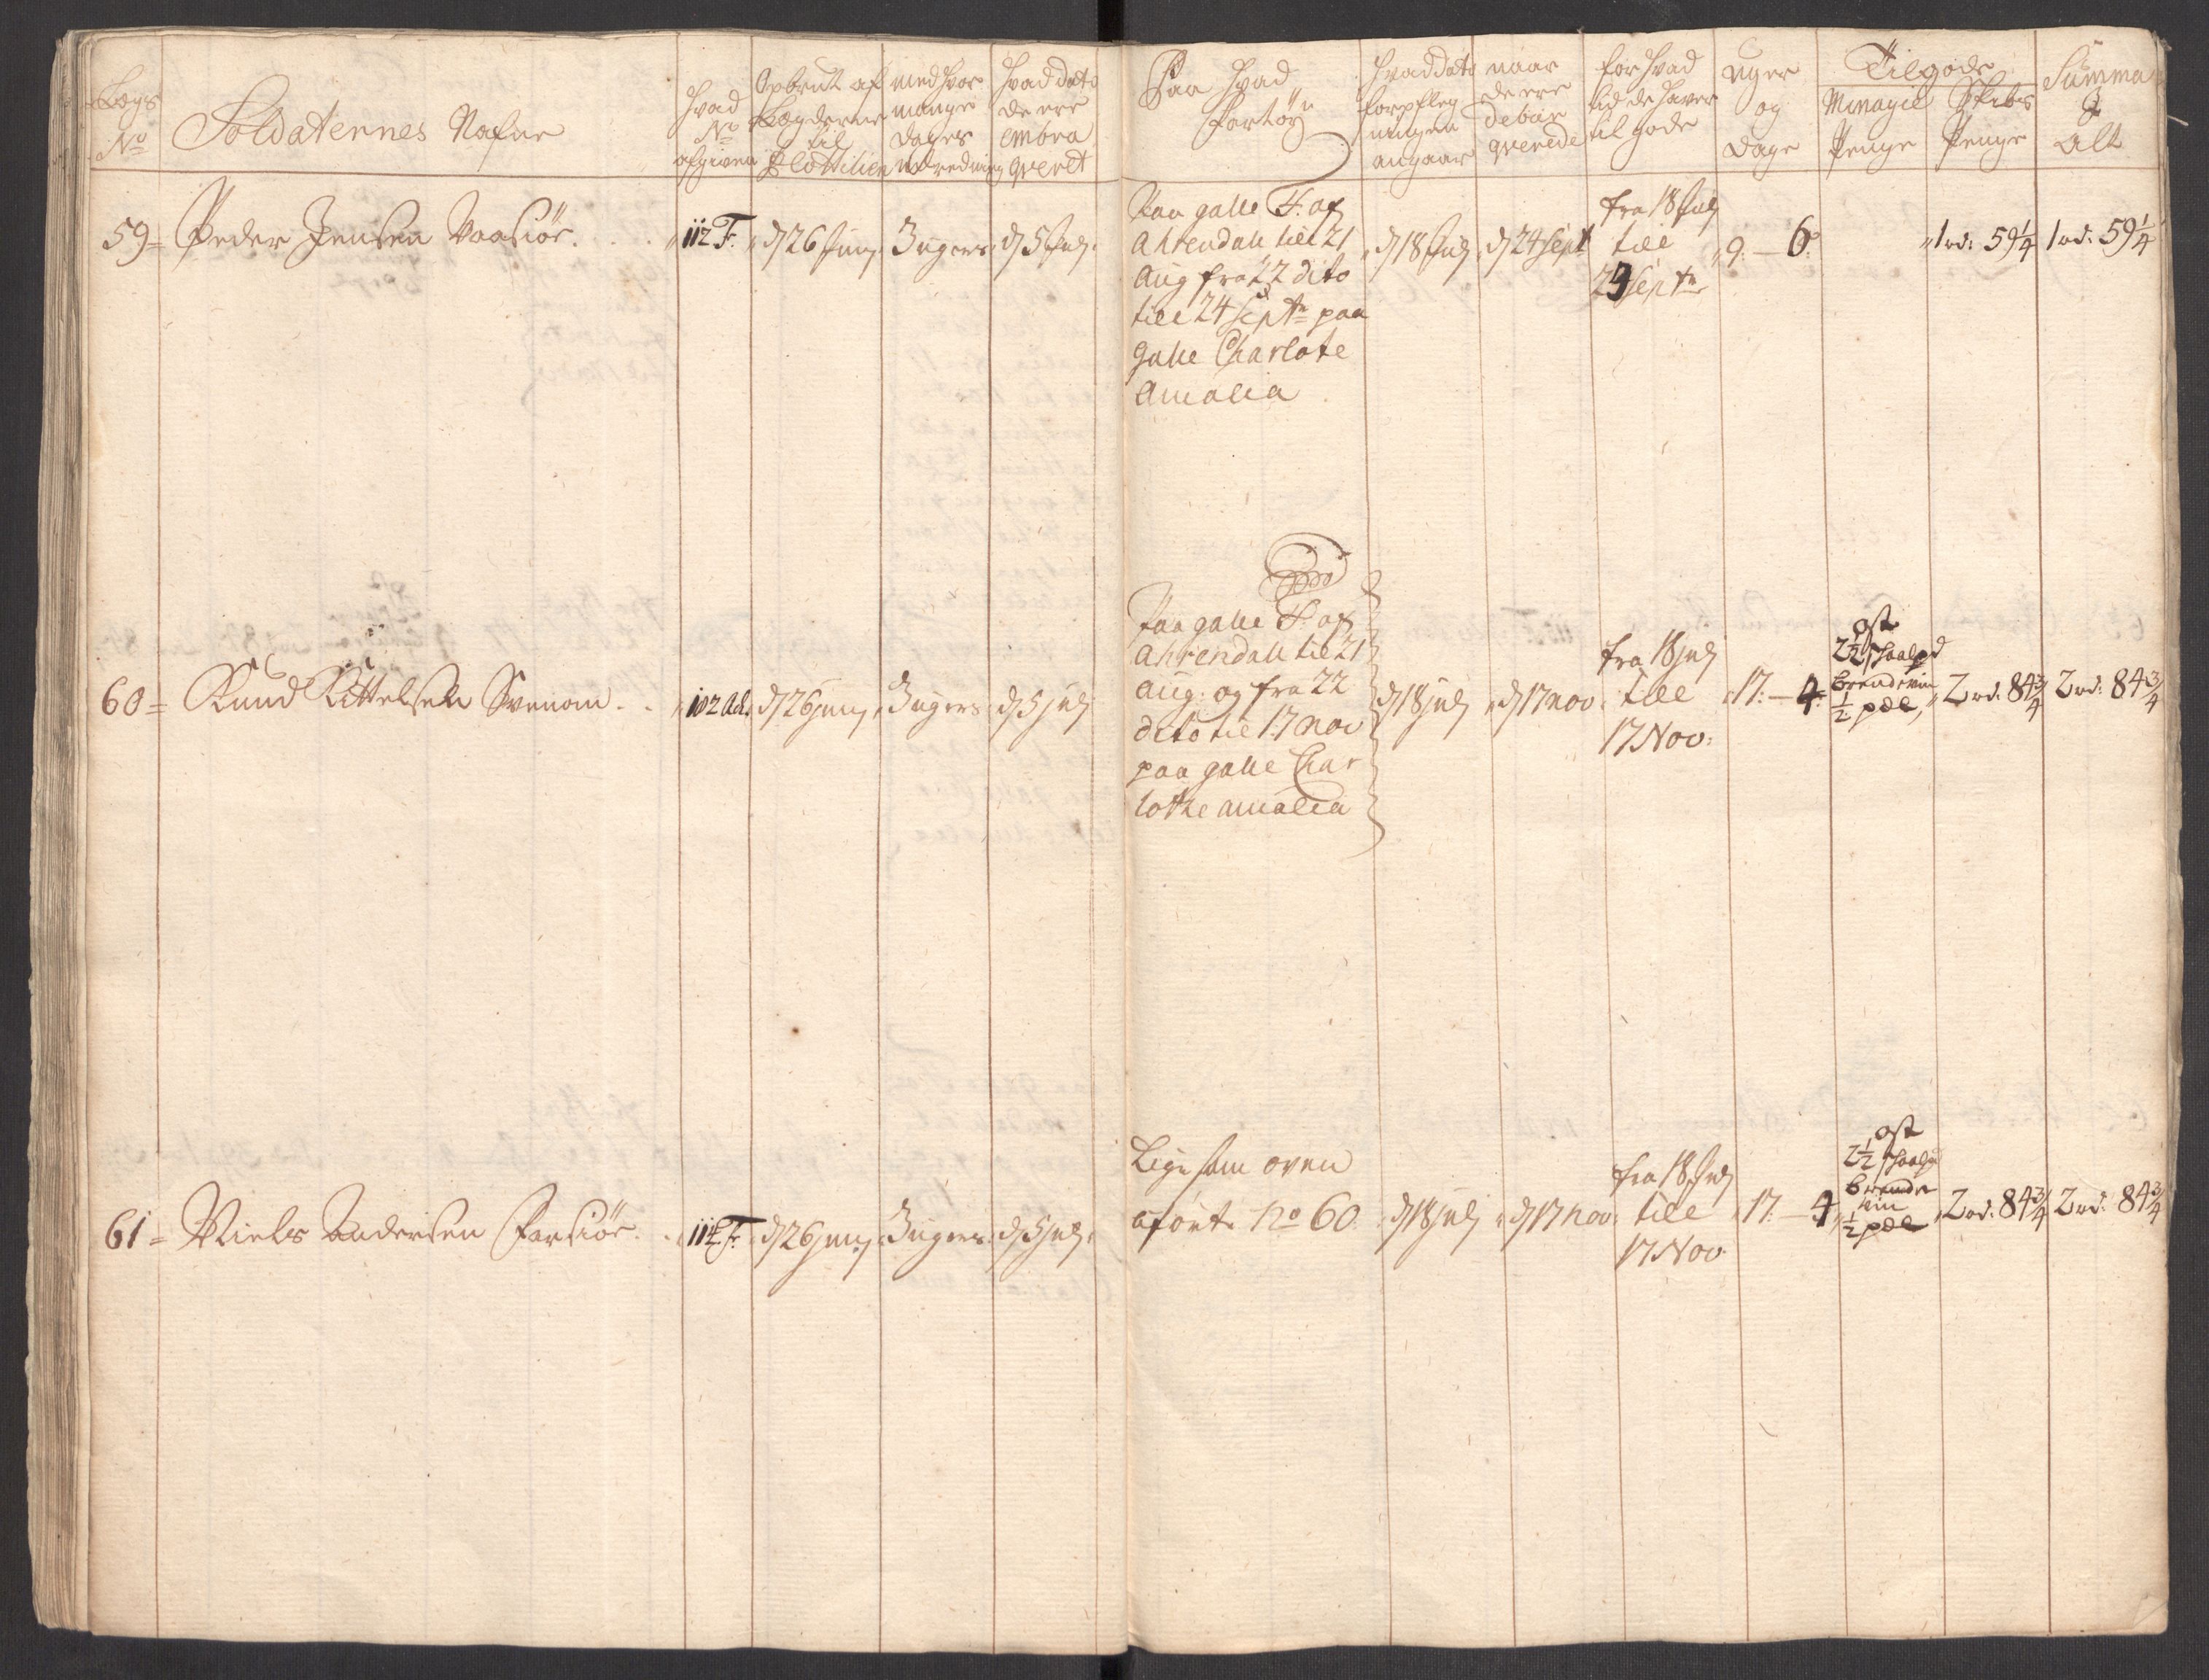 Legs
No
Soldaternes Nafne
Hvad
No
afgiven
Opbrut af
Legderne
til
Flottilien
med hvor
mange
Dages
Udredning
Hvad dato
de ere
embra
qveret
Paa Hvad
Fartöy
Hvad dato
forpfleg
ningen
angaar
naar
de ere
debar
qverede
for hvad
tid de haver
til gode
Uger
og
Dage
Tilgode
Minagie
Penge
Skibs
Penge
Summa
I
Alt
59=
Peder Jensen Vaasiör. . .
112 F.
d 26 Juny
3 ugers
d 5 July
Paa galle F: af
Ahrendall till 21
Aug fra 22 dito
till 24 Septr paa
Galle Charlote
Amalia
d 18 July
d 24 Sept
fra 18 July
till
24 Septr
9. — 6.
1 rd: 59 1/4
1 rd: 59 1/4
60=
Knud Kittelsen Svenom . .
102 Ad.
d 26 juny
3 ugers
d 5 july
Paa galle F: af
Ahrendall till 21
Aug: og fra 22
dito til 17 nov
paa galle Char
lothe amalia
d 18 july
d 17 nov:
fra 18 july
till
17 Nov:
17. — 4.
ost
2 1/2 skaalpd
brendevin
1/2 pæl
2 rd: 84 3/4
2 rd: 84 3/4
61=
Niels Andersen Farsiör . .
112 F.
d 26 juny
3 ugers
d 5 july
Lige som oven
aförte No 60.
d 18 july
d 17 nov:
fra 18 July
till
17 Nov
17. — 4
ost
2 1/2 skaalpd
brende
vin
1/2 pæl
2 rd: 84 3/4
2 rd: 84 3/4